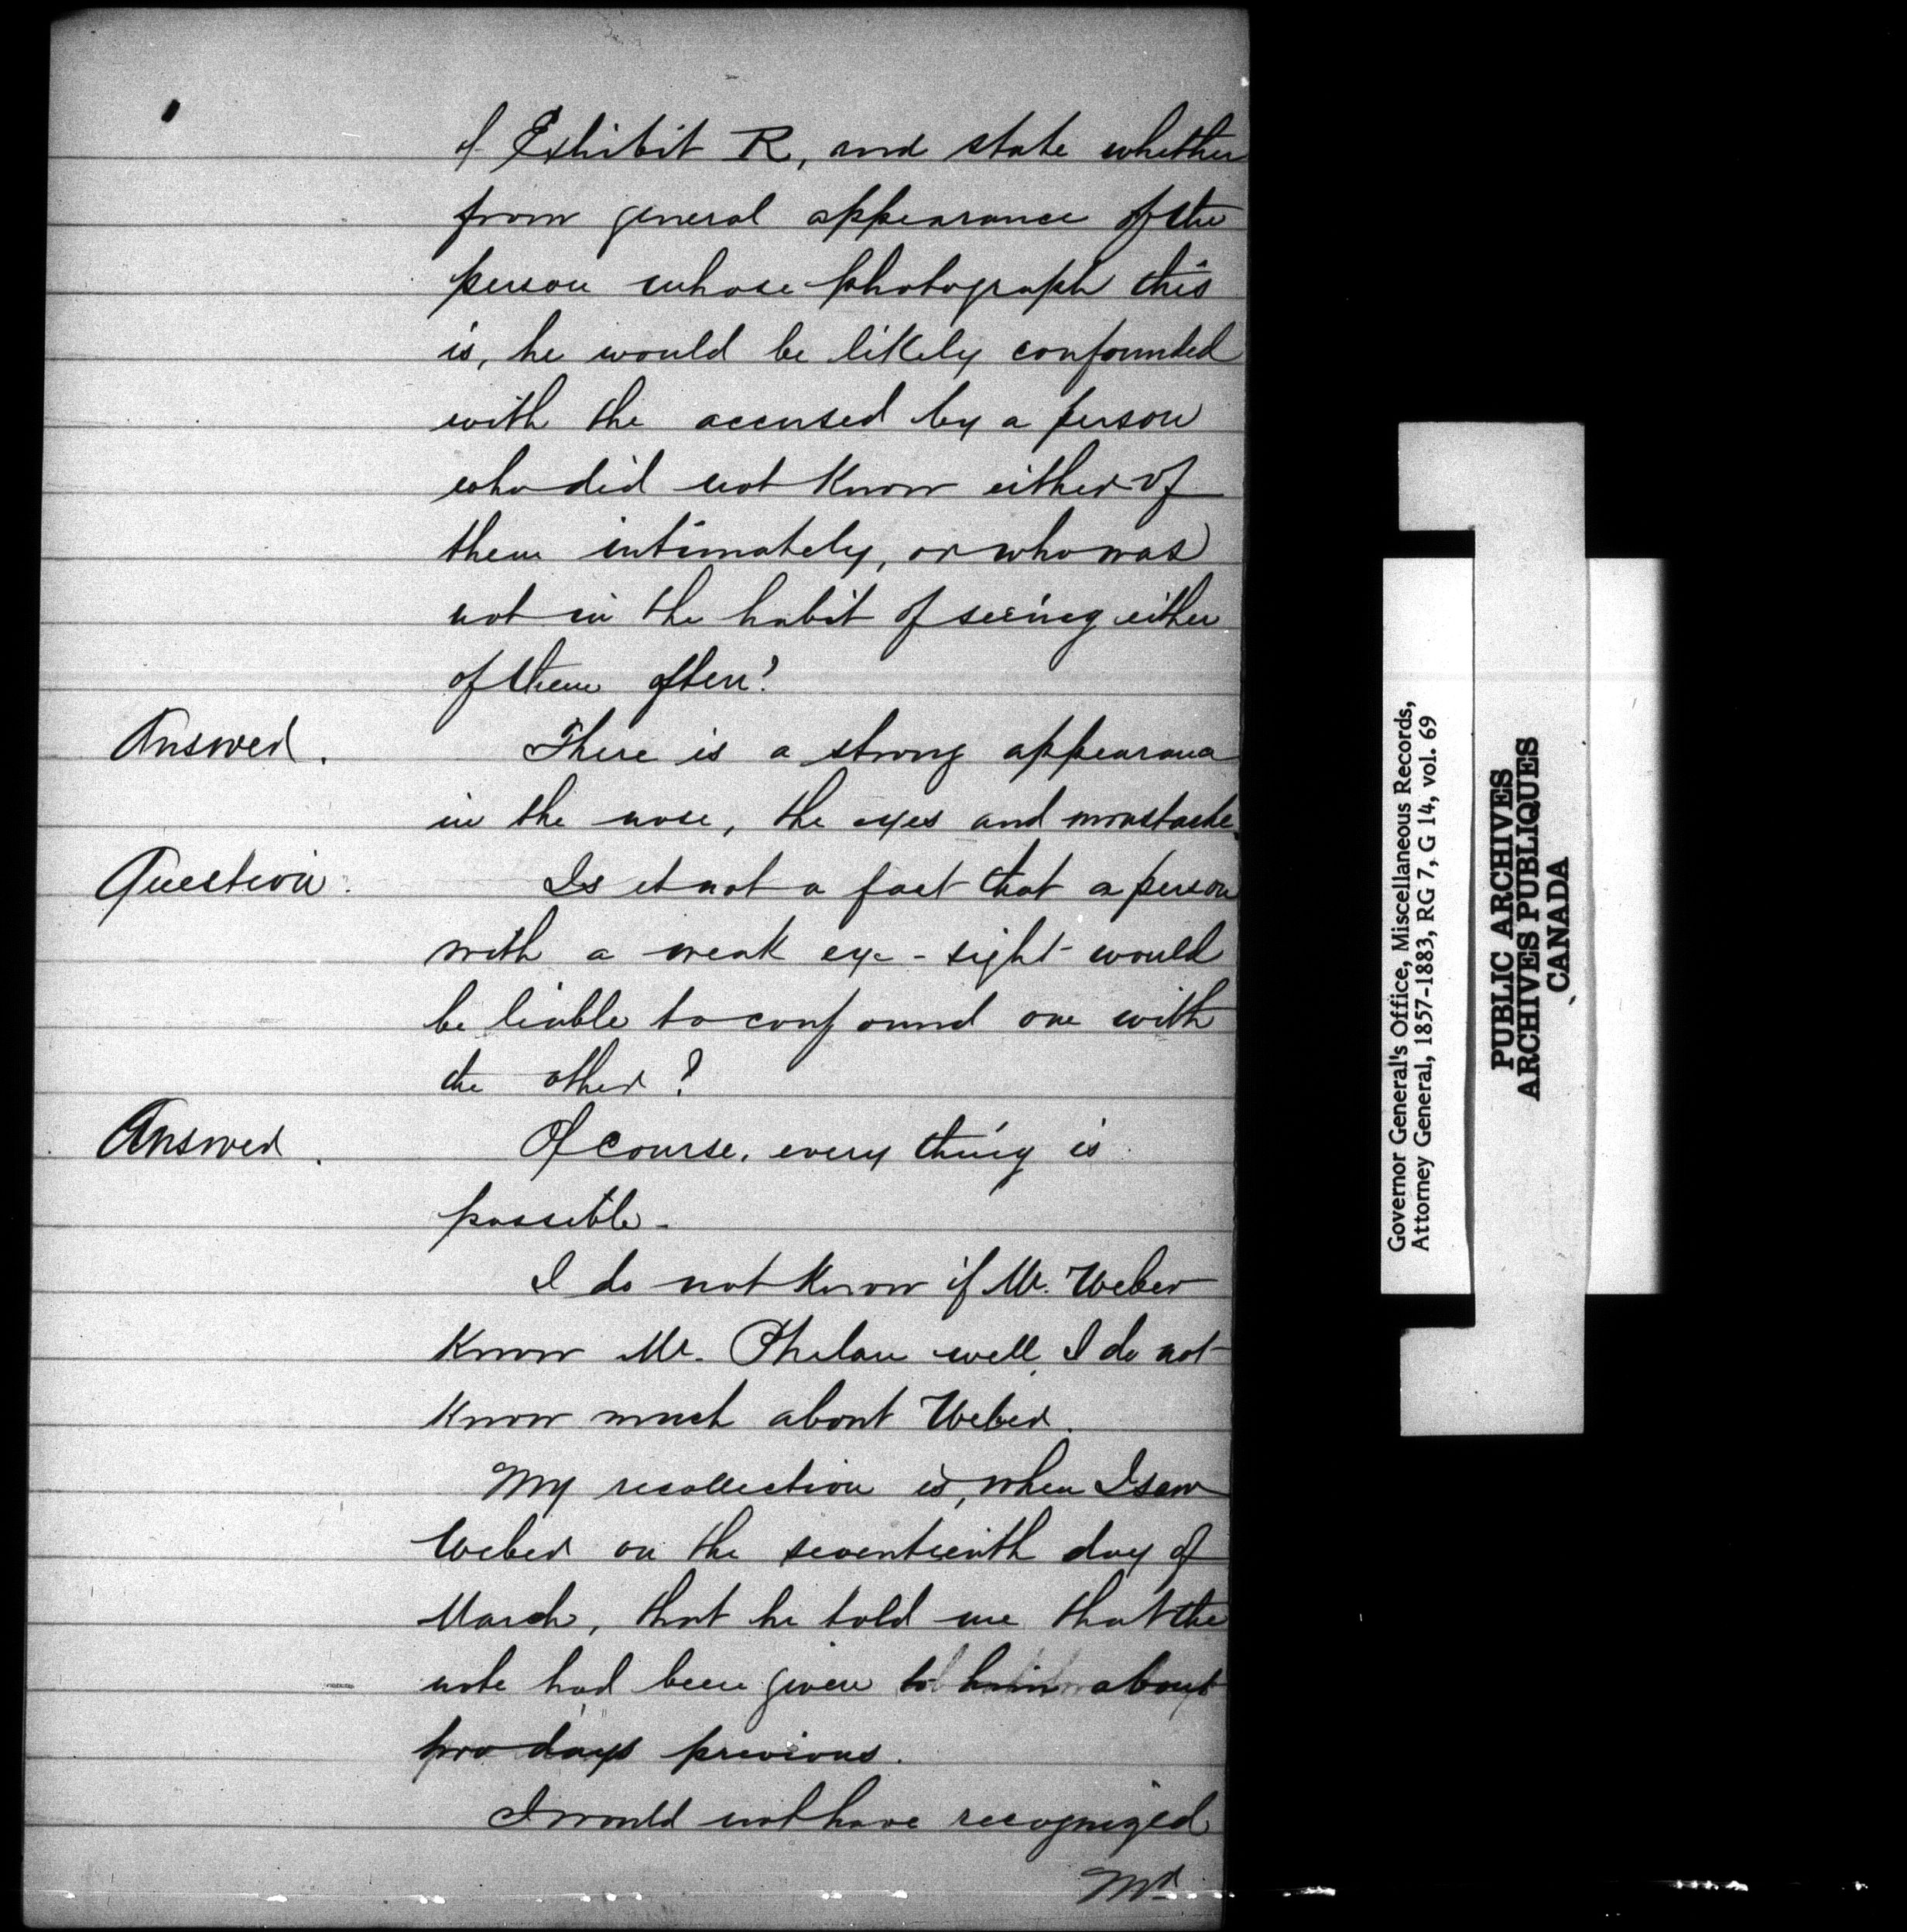 of Exhibit R, and state whether
from general appearance of the
person whose photograph this
is, he would be likely confounded
with the accused by a person
who did not know either of
them intimately, or who was
not in the habit of seeing either
of them often?
Answer. There is a strong appearance
in the nose, the eyes and moustache.
Question. Is it not a fact that a person
with a weak eye-sight would
be liable to confound one with
the other?
Answer. Of course, every thing is
possible.
I do not know if Mr. Weber
know Mr. Phelan well, I do not
know much about Weber.
My recollection is, when I saw
Weber on the seventeenth day of
March, that he told me that the
note had been given to him about
two days previous.
I would not have recognized
Mr
Governor General's Office, Miscellaneous Records,
Attorney General, 1857-1883, RG 7, G 14, vol. 69
PUBLIC ARCHIVES
ARCHIVES PUBLIQUES
CANADA